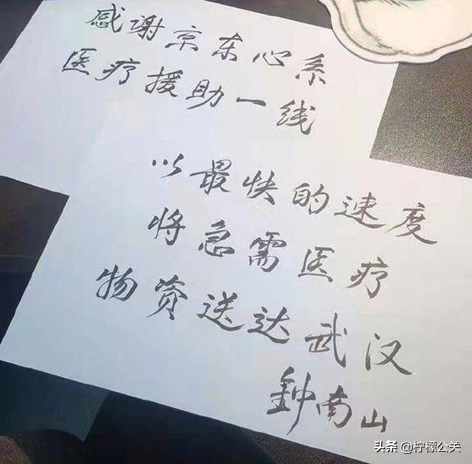 感谢京东心系
医疗援助一线
以最快的速度
将急需医疗
物资送达武汉
鈡南山
头条@柠檬公关